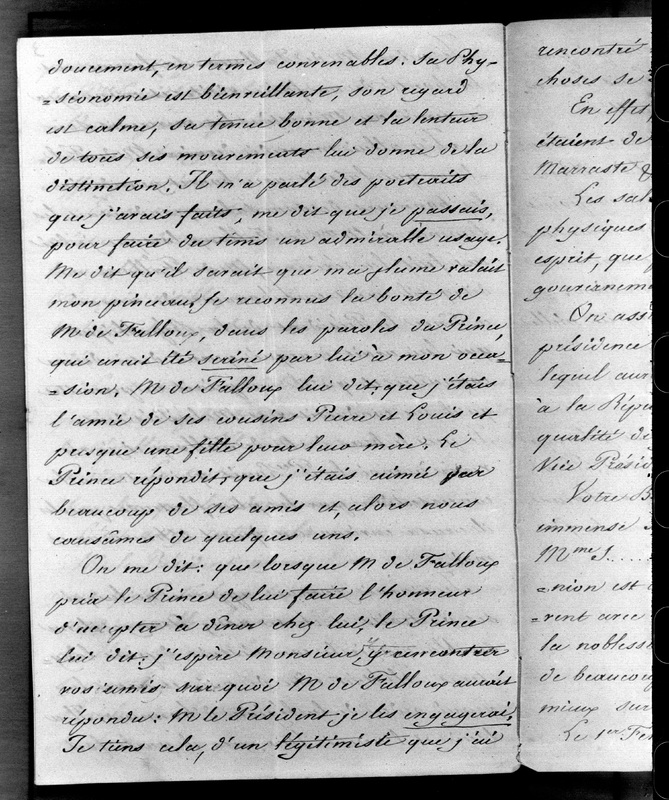 doucement, en termes convenables. Sa Phy-
=sionomie est bienveillante, son regard
est calme, sa tenue bonne et la lenteur
de tous ses mouvements lui donne de la
distinction. Il m'a parlé des portraits
que j'avais faits, me dit que je passais,
pour faire du tems un admirable usage.
Me dit qu'il savait que ma plume valait
mon pinceau, je reconnus la bonté de
M de Falloux, dans les paroles du Prince,
qui avait été seriné par lui à mon occa-
=sion. M de Falloux lui dit; que j'étais
l'amie de ses cousins Pierre et Louis et
presque une fille pour leur mère. Le
Prince répondit; que j'étais aimée par
beaucoup de ses amis et, alors nous
causâmes de quelques uns.
On me dit: que lorsque M de Falloux
pria le Prince de lui faire l'honneur
d'accepter à dîner chez lui, le Prince
lui dit: j'espère Monsieur y rencontrer
vos amis sur quoi M de Falloux aurait
répondu: M le Président je les engagerai,
Je tiens cela, d'un légitimiste que j'ai
rencontré
choses se
En effet,
étaient de
Marraste &
Les sal
physiques
esprit, que
gouvernem
On assi
présidence
lequel aur
à la Répu
qualité de
Vice Présid
Votre B
immense
Mme S.....
=nion est
=rent avec
la noblesse
de beaucou
mieux sur
Le 1er Fe